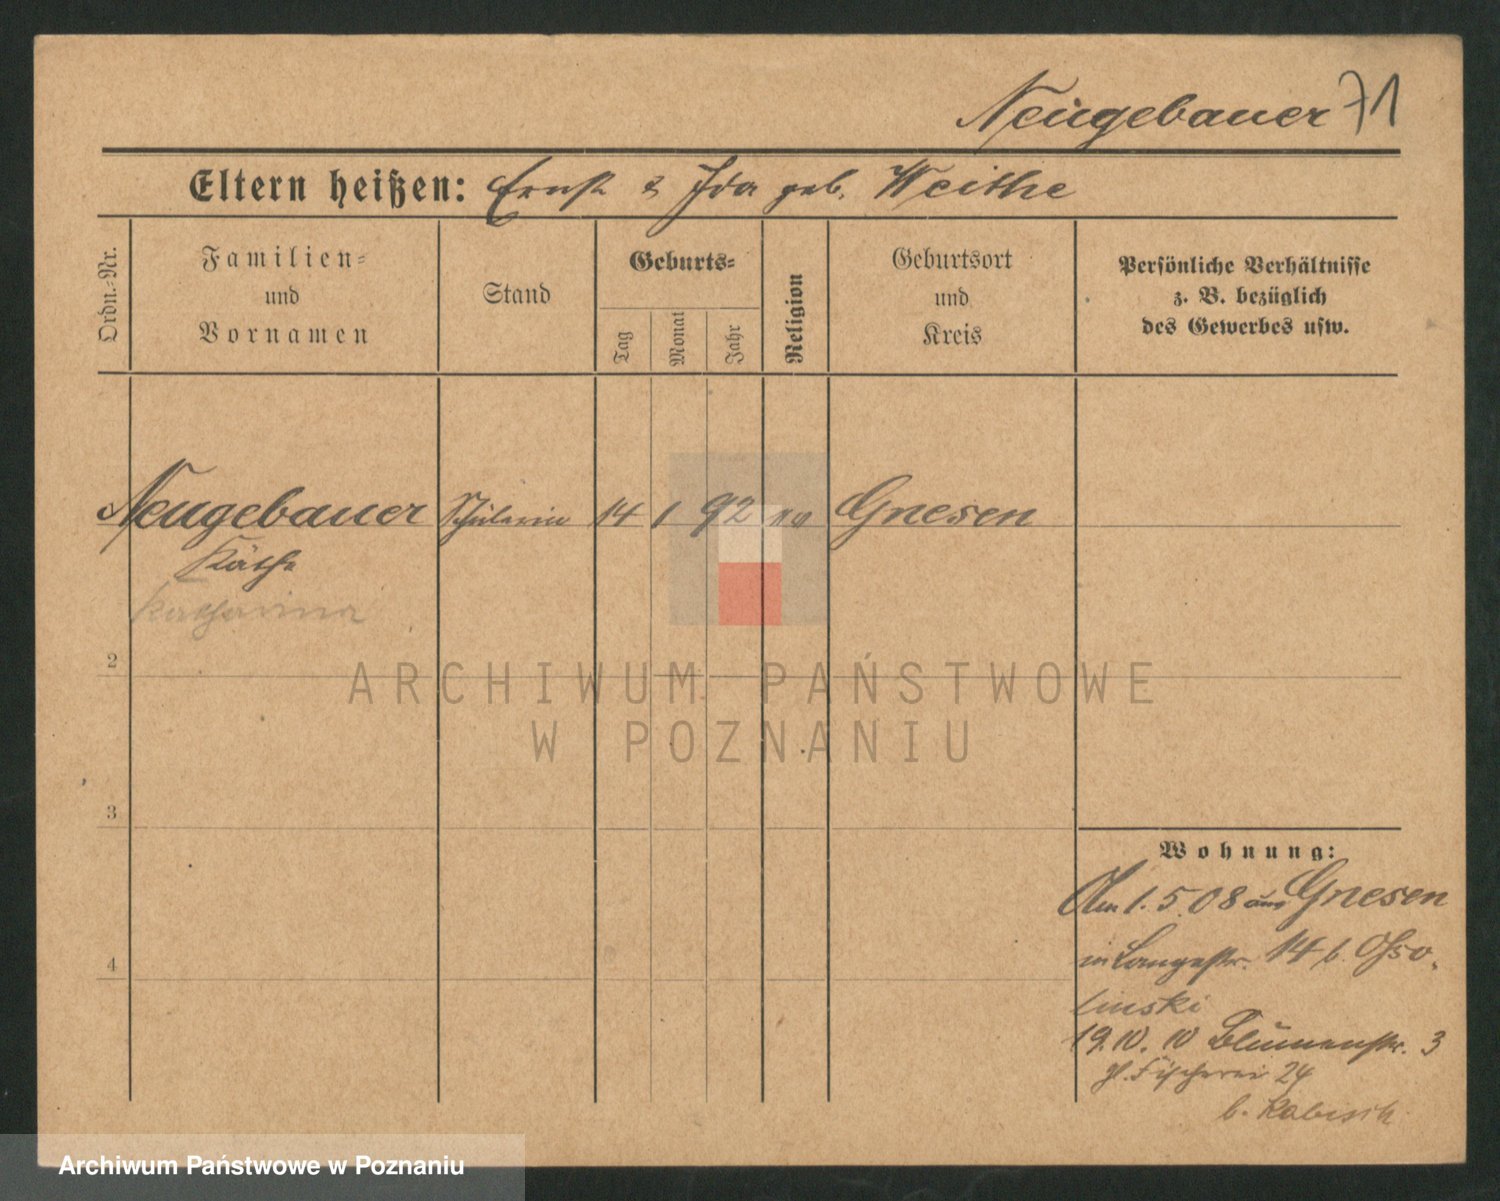 Neugebauer 71
Eltern heißen: Ernst & Ida geb. Weithe
Ordn.-Nr.
Familien-
und
Vornamen
Stand
Geburts-
Tag
Monat
Jahr
Religion
Geburtsort
und
Kreis
Persönliche Verhältnisse
z. B. bezüglich
des Gewerbes usw.
Neugebauer Schülerin 14 1 92 Gnesen
Käthe
Katharina
2
ARCHIWUM PAŃSTWOWE
W POZNANIU
3
Wohnung:
Am 1.5.08 aus Gnesen
in Langestr. 14 b. Osso-
linski
4
19.10.10 Blumenstr. 3
Fischerei 24
b. Kabisch
Archiwum Państwowe w Poznaniu